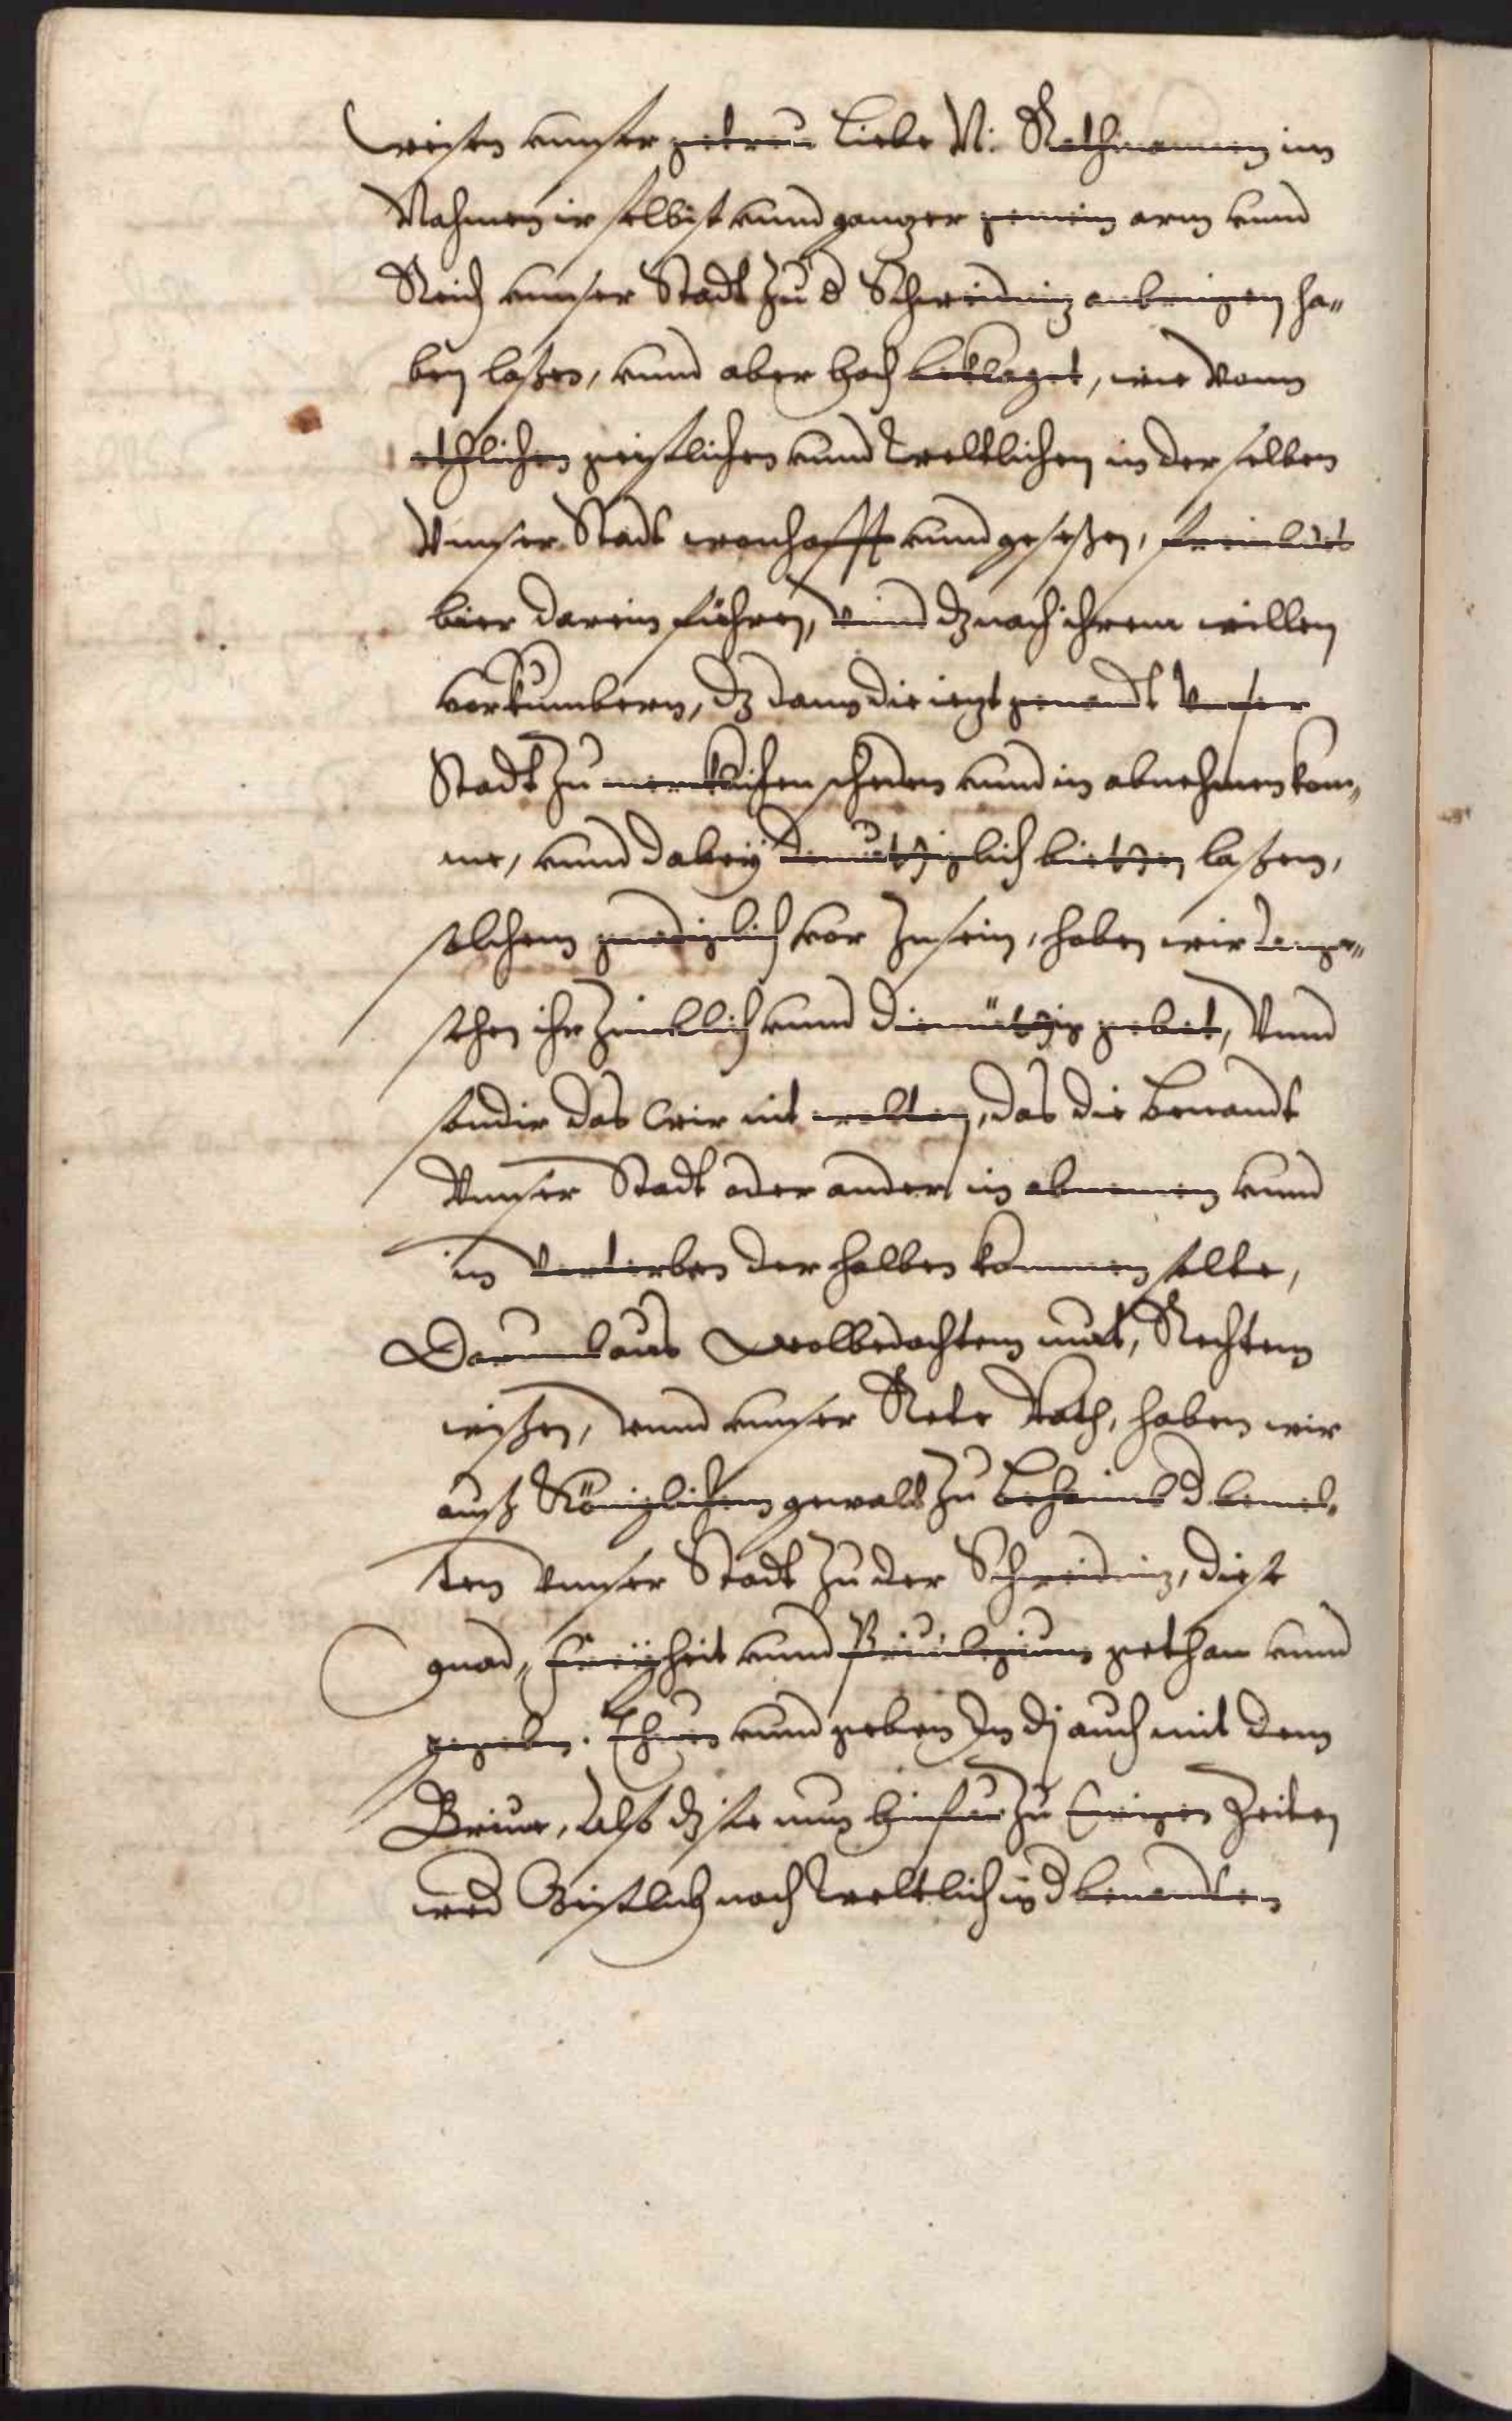 weisen vnnser getreu Liebe N: Rathmannen im
Nahmen ir selbist vnnd ganzer gemein arm vnnd
Reich vnnser Stadt zu d Schweidniz anbringen ha„
ben laßen, vnnd aber hoch beklaget, wie Vonn
ethlichen geistlichen vnnd weltlichen in derselben
Vnnser Stadt wonhafft vnnd geseßen, frembds
bier darein führen, vnnd dz nach ihrem willen
vorkümbern, dz dann die iezt genandt Vnser
Stadt zu mercklichen schaden vnnd in abnehmen kom„
me, vnnd dabeÿ demüthiglich bitten laßen,
solchem gnediglich vor zu sein, haben wir ange„
sehen ihr zimblich vnnd diemüthig gebet, Vnnd
sondir das Wir nit wolten, das die benandt
Vnnser Stadt oder ander in abnemen vnnd
in Vorterben derhalben kommen solte,
Darumb aus Wolbedachtem mut, Rechtem
wißen, vnnd vnnser Rete Rath, haben wir
auß Königlichem gewalt zu Beheimb d bemel„
ten Vnnser Stadt zu der Schweidniz, diese
gnad, Freÿheit vnnd Priuilegium gethan vnnd
gegeben. Thuen vnnd geben In dz auch mit dem
Brieue, Also dz sie nun hinfür zu Ewigen Zeiten
wed Geistlich noch Weltlich in d benandten